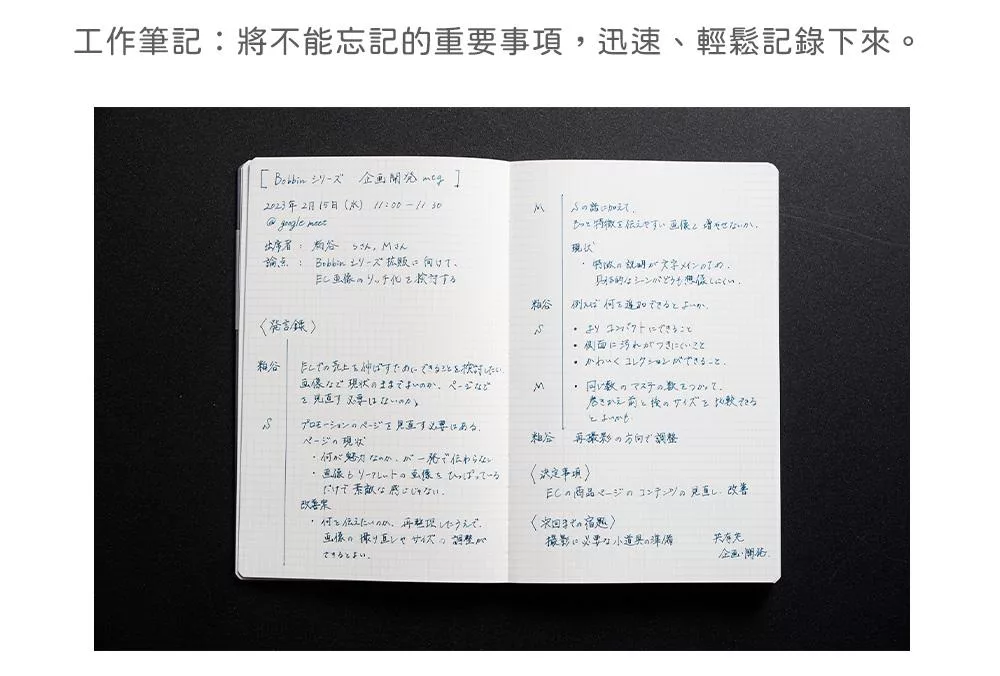 工作筆記：將不能忘記的重要事項，迅速、輕鬆記錄下來。
[ Bobbin シリーズ 企画開発 mtg ]
2023年2月15日（水） 11:00 － 11:30
@ google meet
出席者： 粕谷 Sさん, Mさん
論点： Bobbin シリーズ拡販に向けて、
EC画像のリッチ化を検討する
〈発言録〉
粕谷 ECでの売上を伸ばすためにできることを検討したい
画像など現状のままでよいのか、ページなど
を見直す必要はないのか。
S プロモーションのページを見直す必要はある。
ページの現状
・何が魅力なのか、が一発で伝わらない
・画像もリーフレットの画像をひっぱっている
だけで素敵な感じじゃない。
改善案
・何を伝えたいのか、再整理したうえで、
画像の撮り直しやサイズの調整が
できるとよい。
M Sの話に加えて、
もっと特徴を伝えやすい画像を増やせないか。
現状
・特徴の説明が文字メインのため、
具体的なシーンがどうも想像しにくい。
粕谷 例えば何を追加できるとよいか。
S ・よりコンパクトにできること
・側面に汚れがつきにくいこと
・かわいくコレクションができること。
M ・同じ数のマステの数をつかって、
巻きかえ前と後のサイズを比較できる
とよいかも
粕谷 再撮影の方向で調整
〈決定事項〉
ECの商品ページのコンテンツの見直し、改善
〈次回までの宿題〉
撮影に必要な小道具の準備 共有先
企画・開発